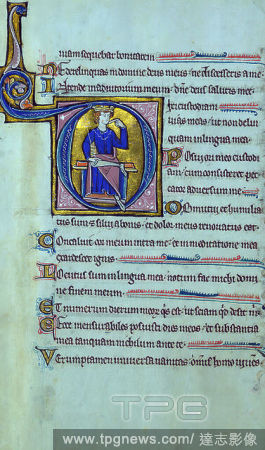 niam sequebar bonitatem
Ne derelinquas me domine deus meus : ne discesseris a me
Intende in adiutorium meum : dne deus salutis mee
Dixi custodiam
uias meas : ut non delin
quam in lingua mea
Posui ori meo custodi
am : cum consisteret pec
cator aduersum me
Obmutui et humilia
tus sum & silui a bonis : et dolor meus renouatus est
Concaluit cor meum intra me : et in meditatione mea
exardescet ignis
Locutus sum in lingua mea : notum fac michi domi
ne finem meum
Et numerum dierum meorum est : ut sciam desit
Ecce mensurabiles posuisti dies meos : et substantia
mea tanquam nichilum ante te
Verumptamen uniuersa uanitas : homo uiuens
TPG
www.tpgnews.com／達志影像